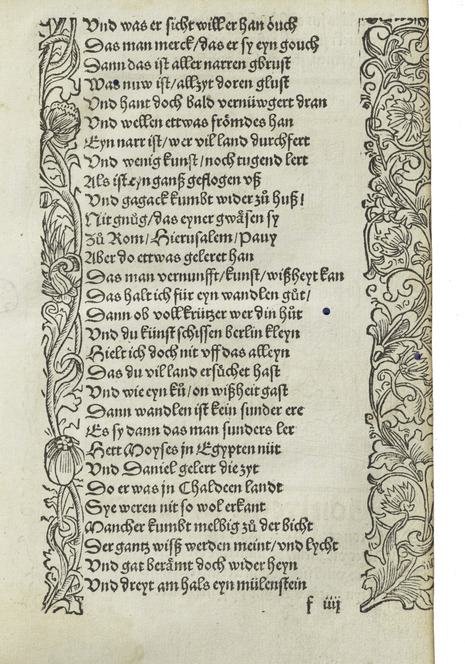 Vnd was er sicht will er han ouch
Das man merck/das er sy eyn gouch
Dann das ist aller narren gbrust
Was nuw ist/allzyt doren glust
Vnd hant doch bald vernüwgert dran
Vnd wellen ettwas frömdes han
Eyn narr ist/wer vil land durchfert
Vnd wenig kunst/noch tugend lert
Als ist eyn ganß geflogen vß
Vnd gagack kumbt wider zů huß!
Nit gnůg/das eyner gwäsen sy
Zů Rom/Hierusalem/Pauy
Aber do ettwas geleret han
Das man vernunfft/kunst/wißheyt kan
Das halt ich für eyn wandlen gůt/
Dann ob voll krützer wer din hůt
Vnd du künst schissen berlin kleyn
Hielt ich doch nit vff das alleyn
Das du vil land ersůchet hast
Vnd wie eyn ků/on wißheit gast
Dann wandlen ist kein sunder ere
Es sy dann das man sunders ler
Hett Moyses jn Egypten nüt
Vnd Daniel gelert die zyt
Do er was jn Chaldeen landt
Sye weren nit so wol erkant
Mancher kumbt melbig zů der bicht
Der gantz wiß werden meint/vnd lycht
Vnd gat berämt doch wider heyn
Vnd dreyt am hals eyn mülenstein
f iiij